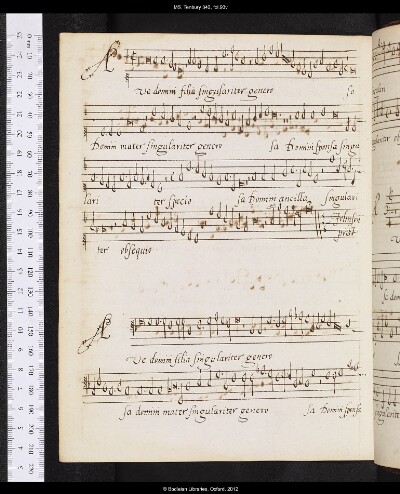 MS. Tenbury 342, fol. 93v
A
Ve domin filia singulariter genero sa
Domin mater singulariter genero sa Domin sponsa singu
lari ter specio sa Domin ancilla singulari
ter obsequio
A
Ve domin filia singulariter genero
sa domin mater singulariter genero sa Domin sponsa
© Bodleian Libraries, Oxford, 2012